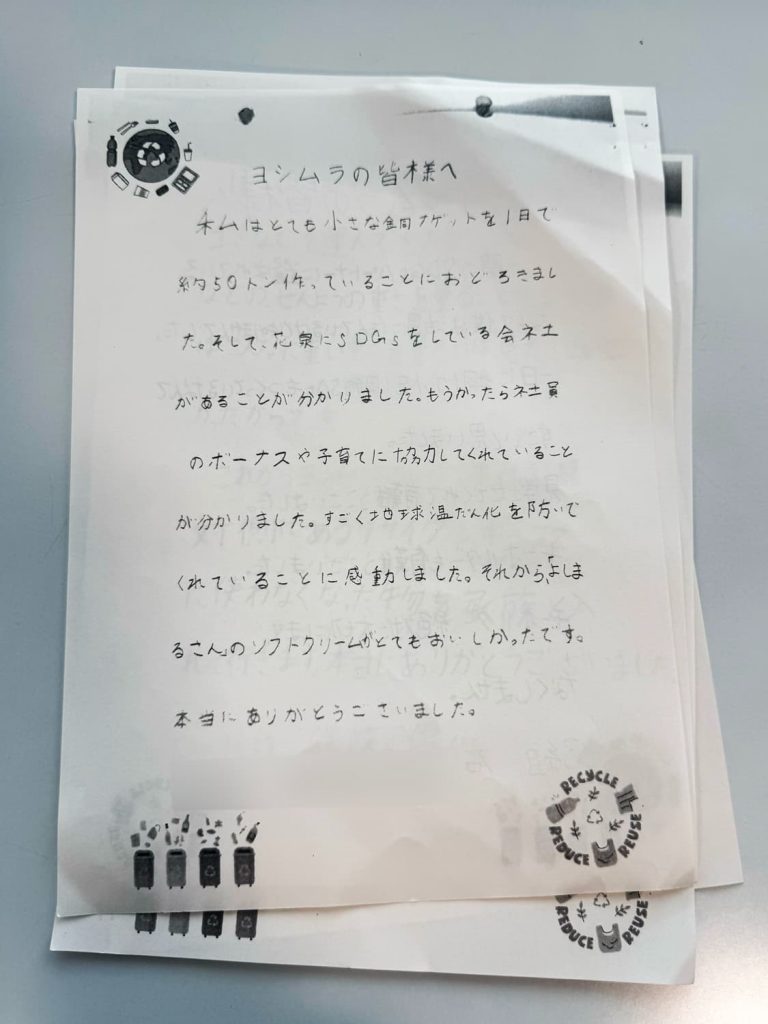 ヨシムラの皆様へ
私はとても小さな銅ナゲットを1日で
約50トン作っていることにおどろきまし
た。そして、花泉にSDGsをしている会社
があることが分かりました。もうかったら社員
のボーナスや子育てに協力してくれていること
が分かりました。すごく地球温だん化を防いで
くれていることに感動しました。それから、「よしま
るさん」のソフトクリームがとてもおいしかったです。
本当にありがとうございました。
RECYCLE
REDUCE
REUSE
REDUCE
REUSE